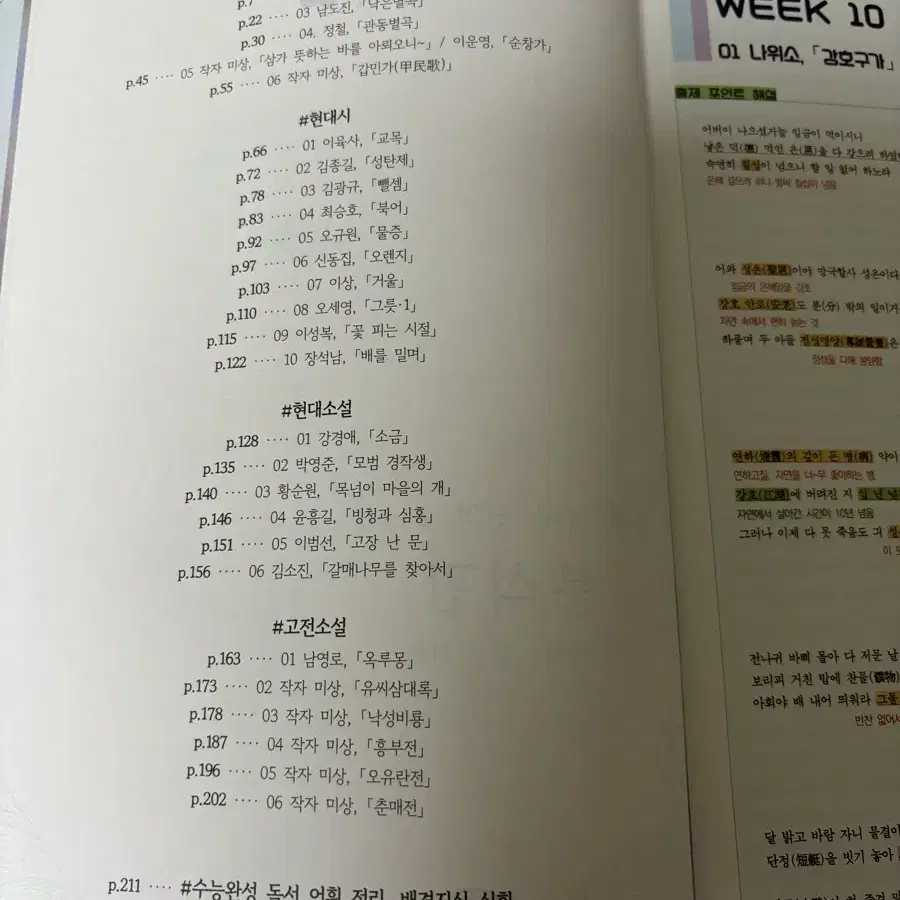 p.7
p.22 ···· 03 남도진, 「낙은별곡」
p.30 ···· 04. 정철, 「관동별곡」
p.45 ···· 05 작자 미상, 「삼가 뜻하는 바를 아뢰오니~」 / 이운영, 「순창가」
p.55 ···· 06 작자 미상, 「갑민가(甲民歌)」
#현대시
p.66 ···· 01 이육사, 「교목」
p.72 ···· 02 김종길, 「성탄제」
p.78 ···· 03 김광규, 「뺄셈」
p.83 ···· 04 최승호, 「북어」
p.92 ···· 05 오규원, 「물증」
p.97 ···· 06 신동집, 「오렌지」
p.103 ···· 07 이상, 「거울」
p.110 ···· 08 오세영, 「그릇·1」
p.115 ···· 09 이성복, 「꽃 피는 시절」
p.122 ···· 10 장석남, 「배를 밀며」
#현대소설
p.128 ···· 01 강경애, 「소금」
p.135 ···· 02 박영준, 「모범 경작생」
p.140 ···· 03 황순원, 「목넘이 마을의 개」
p.146 ···· 04 윤흥길, 「빙청과 심홍」
p.151 ···· 05 이범선, 「고장 난 문」
p.156 ···· 06 김소진, 「갈매나무를 찾아서」
#고전소설
p.163 ···· 01 남영로, 「옥루몽」
p.173 ···· 02 작자 미상, 「유씨삼대록」
p.178 ···· 03 작자 미상, 「낙성비룡」
p.187 ···· 04 작자 미상, 「흥부전」
p.196 ···· 05 작자 미상, 「오유란전」
p.202 ···· 06 작자 미상, 「춘매전」
p.211 ···· #수능완성 독서 어휘 정리, 배경지식 심화
WEEK 10
01 나위소, 「강호구가」
출제 포인트 해설
어버이 나으셔거늘 임금이 먹이시니
낳은 덕(德) 먹인 은(恩)을 다 갚으려 하였
숙연히 칠십이 넘으니 할 일 없어 하노라
은혜 갚으려 하니 벌써 칠십이 넘음
어와 성은(聖恩)이야 망극할사 성은이다
임금의 은혜임을 강조
강호 안로(安老)도 분(分) 밖의 일이거
자연 속에서 편히 늙는 것
하물며 두 아들 전성영양(專城榮養)은
정성을 다해 봉양함
연하(煙霞)의 깊이 든 병(病) 약이
연하고질. 자연을 너~무 좋아하는 병
강호(江湖)에 버려진 지 십 년 넘
자연에서 살아간 시간이 10년 넘음
그러나 이제 다 못 죽음도 긔 성
이 또
전나귀 바삐 몰아 다 저문 날
보리피 거친 밥에 찬물(饌物)
아희야 배 내어 띄워라 그물
반찬 없어서
달 밝고 바람 자니 물결이
단정(短艇)을 빗기 놓아